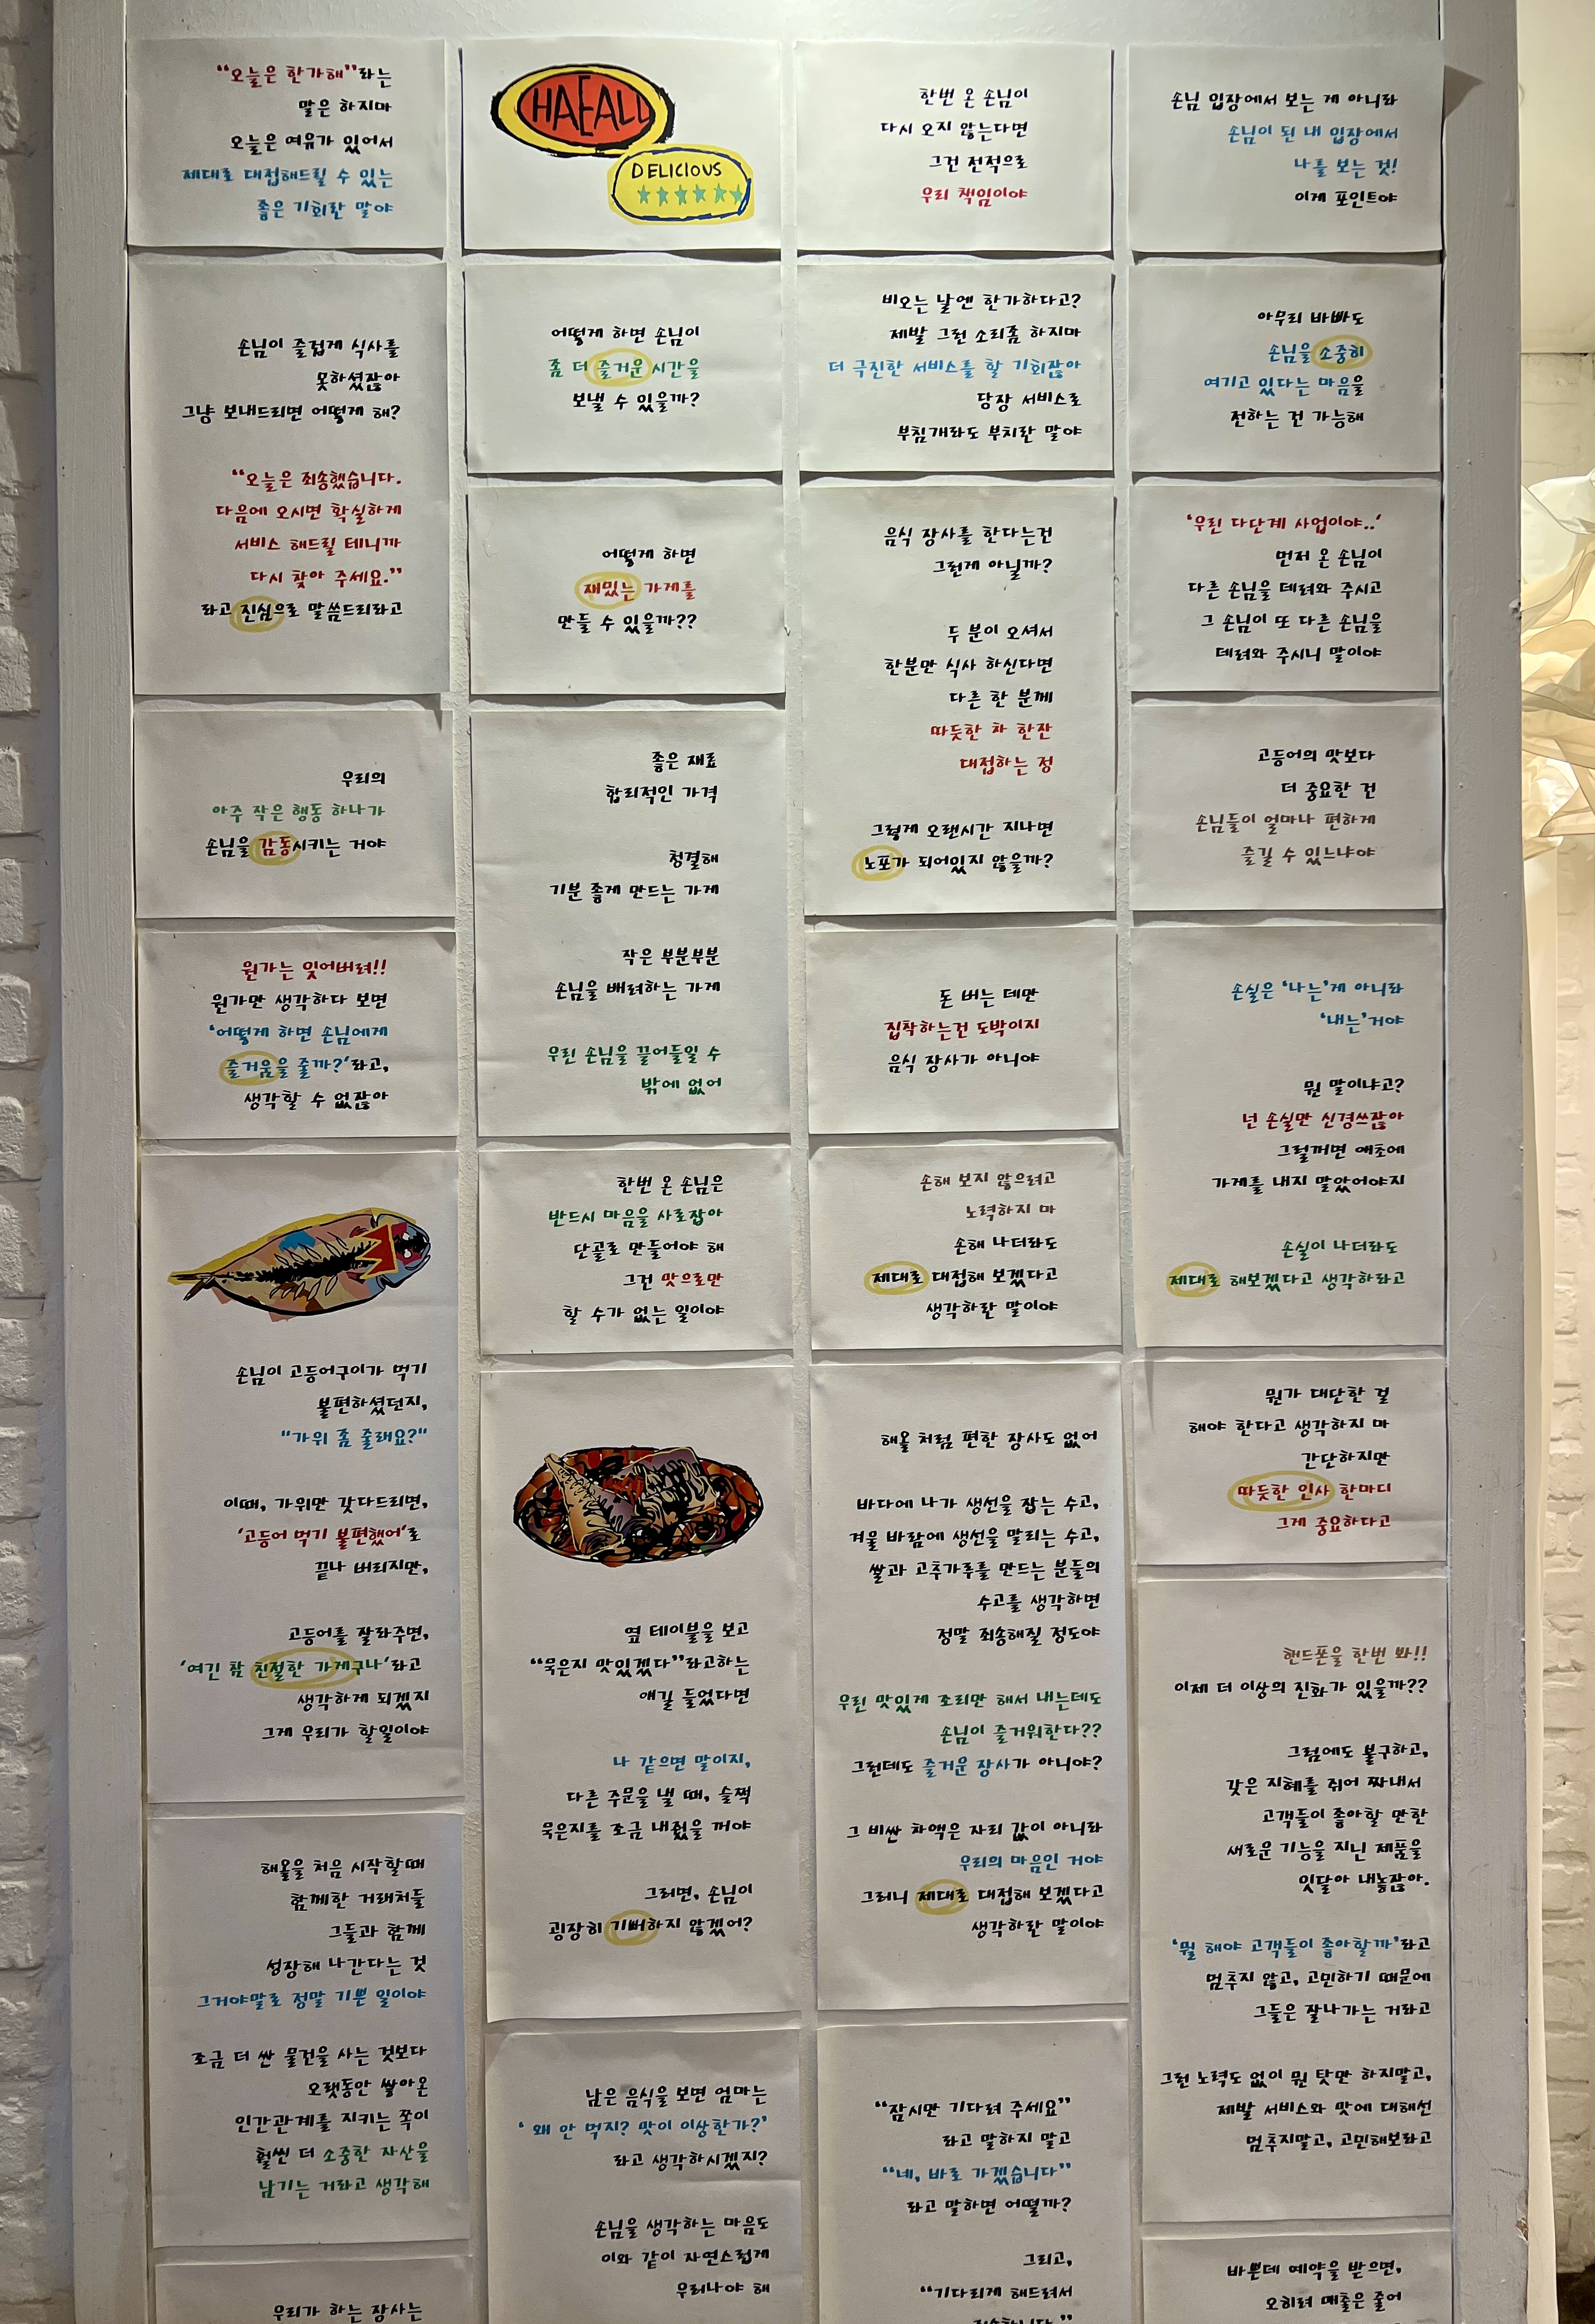 “오늘은 한가해”라는
말은 하지마
오늘은 여유가 있어서
제대로 대접해드릴 수 있는
좋은 기회란 말야
손님이 즐겁게 식사를
못하셨잖아
그냥 보내드리면 어떻게 해?
“오늘은 죄송했습니다.
다음에 오시면 확실하게
서비스 해드릴 테니까
다시 찾아 주세요.”
라고 진심으로 말씀드리라고
우리의
아주 작은 행동 하나가
손님을 감동시키는 거야
원가는 잊어버려!!
원가만 생각하다 보면
‘어떻게 하면 손님에게
즐거움을 줄까?’라고,
생각할 수 없잖아
손님이 고등어구이가 먹기
불편하셨던지,
"가위 좀 줄래요?"
이때, 가위만 갖다드리면,
‘고등어 먹기 불편했어’로
끝나 버리지만,
고등어를 잘라주면,
‘여긴 참 친절한 가게구나’라고
생각하게 되겠지
그게 우리가 할일이야
해올을 처음 시작할때
함께한 거래처들
그들과 함께
성장해 나간다는 것
그거야말로 정말 기쁜 일이야
조금 더 싼 물건을 사는 것보다
오랫동안 쌓아온
인간관계를 지키는 쪽이
훨씬 더 소중한 자산을
남기는 거라고 생각해
우리가 하는 장사는
HAEALL
DELICIOUS
어떻게 하면 손님이
좀 더 즐거운 시간을
보낼 수 있을까?
어떻게 하면
재밌는 가게를
만들 수 있을까??
좋은 재료
합리적인 가격
청결해
기분 좋게 만드는 가게
작은 부분부분
손님을 배려하는 가게
우린 손님을 끌어들일 수
밖에 없어
한번 온 손님은
반드시 마음을 사로잡아
단골로 만들어야 해
그건 맛으로만
할 수가 없는 일이야
옆 테이블을 보고
“묵은지 맛있겠다”라고하는
얘길 들었다면
나 같으면 말이지,
다른 주문을 낼 때, 슬쩍
묵은지를 조금 내줬을 꺼야
그러면, 손님이
굉장히 기뻐하지 않겠어?
남은 음식을 보면 엄마는
‘ 왜 안 먹지? 맛이 이상한가?’
라고 생각하시겠지?
손님을 생각하는 마음도
이와 같이 자연스럽게
우러나야 해
한번 온 손님이
다시 오지 않는다면
그건 전적으로
우리 책임이야
비오는 날엔 한가하다고?
제발 그런 소리좀 하지마
더 극진한 서비스를 할 기회잖아
당장 서비스로
부침개라도 부치란 말야
음식 장사를 한다는건
그런게 아닐까?
두 분이 오셔서
한분만 식사 하신다면
다른 한 분께
따듯한 차 한잔
대접하는 정
그렇게 오랜시간 지나면
노포가 되어있지 않을까?
돈 버는 데만
집착하는건 도박이지
음식 장사가 아니야
손해 보지 않으려고
노력하지 마
손해 나더라도
제대로 대접해 보겠다고
생각하란 말이야
해올 처럼 편한 장사도 없어
바다에 나가 생선을 잡는 수고,
겨울 바람에 생선을 말리는 수고,
쌀과 고추가루를 만드는 분들의
수고를 생각하면
정말 죄송해질 정도야
우린 맛있게 조리만 해서 내는데도
손님이 즐거워한다??
그런데도 즐거운 장사가 아니야?
그 비싼 차액은 자리 값이 아니라
우리의 마음인 거야
그러니 제대로 대접해 보겠다고
생각하란 말이야
“잠시만 기다려 주세요”
라고 말하지 말고
“네, 바로 가겠습니다”
라고 말하면 어떨까?
그리고,
“기다리게 해드려서
손님 입장에서 보는 게 아니라
손님이 된 내 입장에서
나를 보는 것!
이게 포인트야
아무리 바빠도
손님을 소중히
여기고 있다는 마음을
전하는 건 가능해
‘우린 다단계 사업이야..’
먼저 온 손님이
다른 손님을 데려와 주시고
그 손님이 또 다른 손님을
데려와 주시니 말이야
고등어의 맛보다
더 중요한 건
손님들이 얼마나 편하게
즐길 수 있느냐야
손실은 ‘나는’게 아니라
‘내는’거야
뭔 말이냐고?
넌 손실만 신경쓰잖아
그럴꺼면 애초에
가게를 내지 말았어야지
손실이 나더라도
제대로 해보겠다고 생각하라고
뭔가 대단한 걸
해야 한다고 생각하지 마
간단하지만
따듯한 인사 한마디
그게 중요하다고
핸드폰을 한번 봐!!
이제 더 이상의 진화가 있을까??
그럼에도 불구하고,
갖은 지혜를 쥐어 짜내서
고객들이 좋아할 만한
새로운 기능을 지닌 제품을
잇달아 내놓잖아.
‘뭘 해야 고객들이 좋아할까’라고
멈추지 않고, 고민하기 때문에
그들은 잘나가는 거라고
그런 노력도 없이 뭔 탓만 하지말고,
제발 서비스와 맛에 대해선
멈추지말고, 고민해보라고
바쁜데 예약을 받으면,
오히려 매출은 줄어